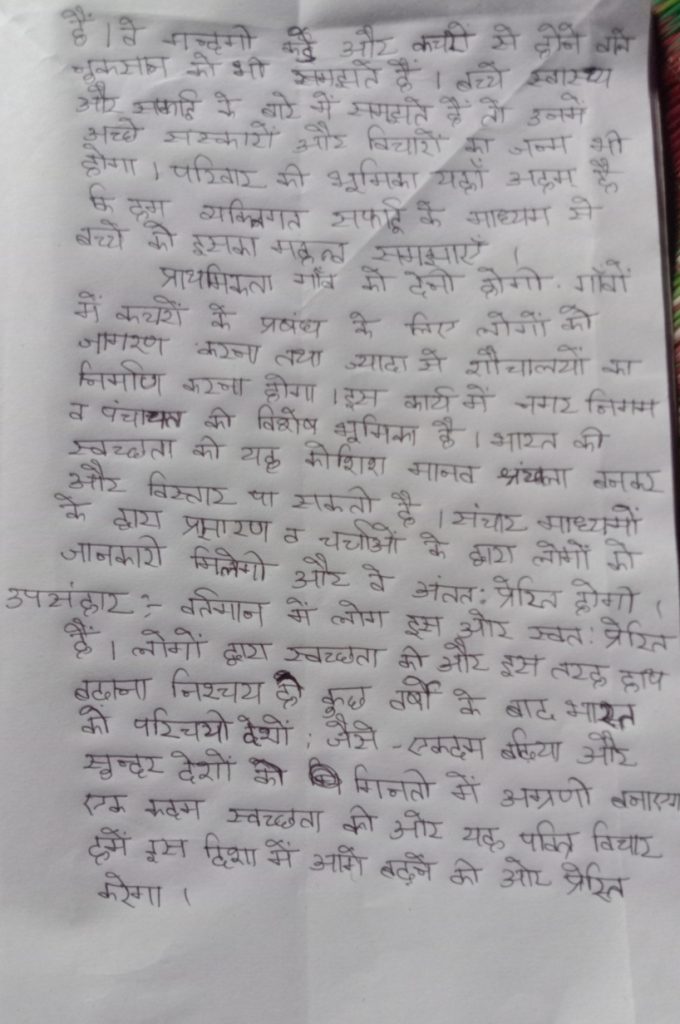 हैं । वे गन्दगी कूड़े और कचरों से होने वाले
नुकसान को भी समझते हैं । बच्चे स्वास्थ्य
और सफाई के बारे में समझते हैं तो उनमें
अच्छे संस्कारों और विचारों का जन्म भी
होगा । परिवार की भूमिका यहाँ अहम है
कि हम व्यक्तिगत सफाई के माध्यम से
बच्चे को इसका महत्व समझाएँ ।
प्राथमिकता गाँव को देनी होगी । गाँवों
में कचरों के प्रबंध के लिए लोगों को
जागरण करना तथा ज्यादा से शौचालयों का
निर्माण करना होगा । इस कार्य में नगर निगम
व पंचायत की विशेष भूमिका है । भारत की
स्वच्छता की यह कोशिश मानव श्रंखला बनकर
और विस्तार पा सकती है । संचार माध्यमों
के द्वारा प्रसारण व चर्चाओं के द्वारा लोगों को
जानकारी मिलेगी और वे अंतत: प्रेरित होगी ।
उपसंहार :- वर्तमान में लोग इस और स्वत: प्रेरित
हैं । लोगों द्वारा स्वच्छता की और इस तरह हाथ
बढाना निश्चय ही कुछ वर्षों के बाद भारत
को परिचयी देशों ; जैसे - एकदम बढिया और
सुन्दर देशों की गिनती में अग्रणी बनाएगा
एक कदम स्वच्छता की ओर यह पंक्ति विचार
हमें इस दिशा में आगे बढ़ने की ओर प्रेरित
करेगा ।